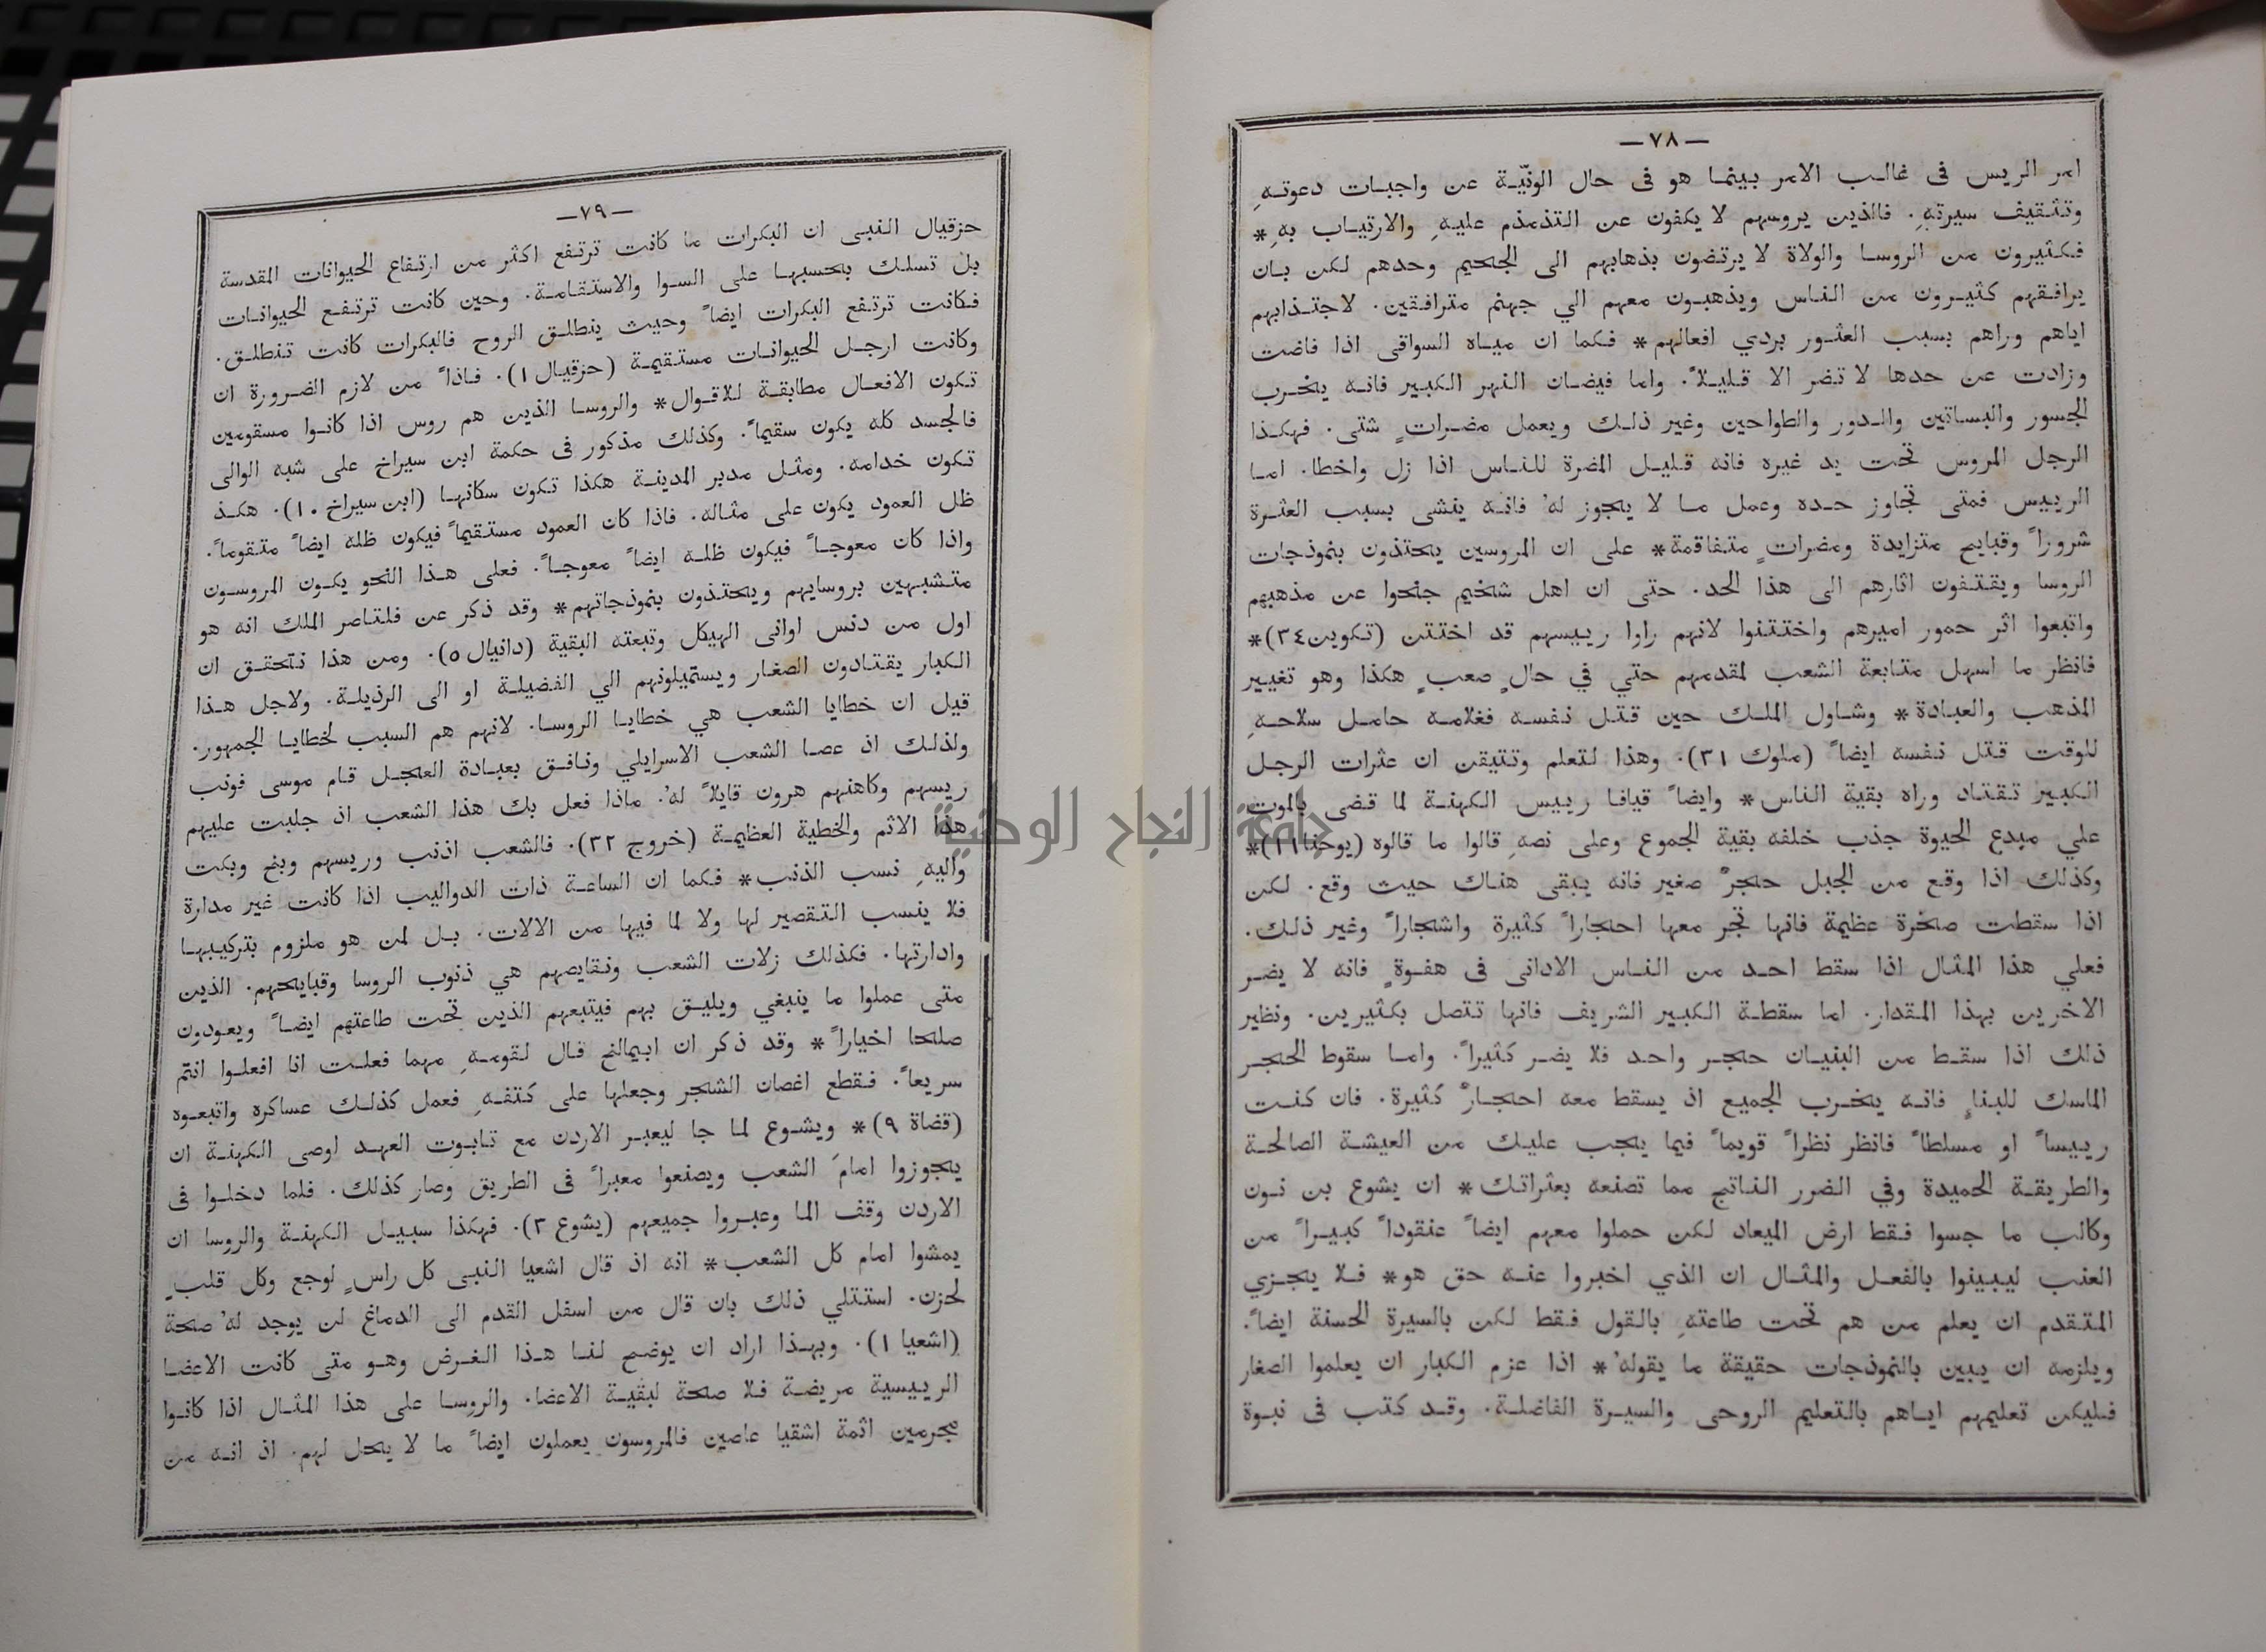 —٧٨—
امر الريس فى غالب الامر بينما هو فى حال الونيّة عن واجبات دعوتهِ
وتثقيف سيرتهِ. فالذين يروسهم لا يكفون عن التذمذم عليهِ والارتياب بهِ*
فكثيرون من الروسا والولاة لا يرتضون بذهابهم الى الجحيم وحدهم لكن بان
يرافقهم كثيرون من الناس ويذهبون معهم الي جهنم مترافقين. لاجتذابهم
اياهم وراهم بسبب العثور بردي افعالهم* فكما ان مياه السواقى اذا فاضت
وزادت عن حدها لا تضر الا قليلاً. واما فيضان النهر الكبير فانه يخرب
الجسور والبساتين والدور والطواحين وغير ذلك ويعمل مضراتٍ شتى. فهكذا
الرجل المروس تحت يد غيره فانه قليل المضرة للناس اذا زل واخطا. اما
الرييس فمتى تجاوز حده وعمل ما لا يجوز لهُ فانه ينشى بسبب العثرة
شروراً وقبايح متزايدة ومضراتٍ متفاقمة* على ان المروسين يحتذون بنموذجات
الروسا ويقتفون اثارهم الى هذا الحد. حتى ان اهل شخيم جنحوا عن مذهبهم
واتبعوا اثر حمور اميرهم واختتنوا لانهم راوا رييسهم قد اختتن (تكوين٣٤)*
فانظر ما اسهل متابعة الشعب لمقدمهم حتي في حالٍ صعبٍ هكذا وهو تغيير
المذهب والعبادة* وشاول الملك حين قتل نفسه فغلامه حامل سلاحهِ
للوقت قتل نفسه ايضاً (ملوك ٣١). وهذا لتعلم وتتيقن ان عثرات الرجل
الكبير تقتاد وراه بقية الناس* وايضاً قيافا رييس الكهنة لما قضى بالموت
علي مبدع الحيوة جذب خلفه بقية الجموع وعلى نصهِ قالوا ما قالوه (يوحنا١١)*
وكذلك اذا وقع من الجبل حجرٌ صغير فانه يبقى هناك حيث وقع. لكن
اذا سقطت صخرة عظيمة فانها تجر معها احجاراً كثيرة واشجاراً وغير ذلك.
فعلي هذا المثال اذا سقط احد من الناس الادانى فى هفوةٍ فانه لا يضر
الاخرين بهذا المقدار. اما سقطة الكبير الشريف فانها تتصل بكثيرين. ونظير
ذلك اذا سقط من البنيان حجر واحد فلا يضر كثيراً. واما سقوط الحجر
الماسك للبناءِ فانه يخرب الجميع اذ يسقط معه احجارٌ كثيرة. فان كنت
رييساً او مسلطاً فانظر نظراً قويماً فيما يجب عليك من العيشة الصالحة
والطريقة الحميدة وفي الضرر الناتج مما تصنعه بعثراتك* ان يشوع بن نون
وكالب ما جسوا فقط ارض الميعاد لكن حملوا معهم ايضاً عنقوداً كبيراً من
العنب ليبينوا بالفعل والمثال ان الذي اخبروا عنه حق هو* فلا يجزي
المتقدم ان يعلم من هم تحت طاعتهِ بالقول فقط لكن بالسيرة الحسنة ايضاً.
ويلزمه ان يبين بالنموذجات حقيقة ما يقولهُ* اذا عزم الكبار ان يعلموا الصغار
فليكن تعليمهم اياهم بالتعليم الروحى والسيرة الفاضلة. وقد كتب فى نبوة
—٧٩—
حزقيال النبى ان البكرات ما كانت ترتفع اكثر من ارتفاع الحيوانات المقدسة
بل تسلك بحسبها على السوا والاستقامة. وحين كانت ترتفع الحيوانات
فكانت ترتفع البكرات ايضاً وحيث ينطلق الروح فالبكرات كانت تنطلق.
وكانت ارجل الحيوانات مستقيمة (حزقيال ١). فاذاً من لازم الضرورة ان
تكون الافعال مطابقة للاقوال* والروسا الذين هم روس اذا كانوا مسقومين
فالجسد كله يكون سقيماً. وكذلك مذكور فى حكمة ابن سيراخ على شبه الوالى
تكون خدامه. ومثل مدبر المدينة هكذا تكون سكانها (ابن سيراخ ١٠). هكذ
ظل العمود يكون على مثاله. فاذا كان العمود مستقيماً فيكون ظله ايضاً متقوماً.
واذا كان معوجاً فيكون ظله ايضاً معوجاً. فعلى هذا النحو يكون المروسون
متشبهين بروسايهم ويحتذون بنموذجاتهم* وقد ذكر عن فلتاصر الملك انه هو
اول من دنس اوانى الهيكل وتبعته البقية (دانيال ٥). ومن هذا نتحقق ان
الكبار يقتادون الصغار ويستميلونهم الي الفضيلة او الى الرذيلة. ولاجل هذا
قيل ان خطايا الشعب هي خطايا الروسا. لانهم هم السبب لخطايا الجمهور.
ولذلك اذ عصا الشعب الاسرايلي ونافق بعبادة العجل قام موسى فونب
ريسهم وكاهنهم هرون قايلاً لهُ. ماذا فعل بك هذا الشعب اذ جلبت عليهم
هذا الاثم والخطية العظيمة (خروج ٣٢). فالشعب اذنب وريسهم وبخ وبكت
واليهِ نسب الذنب* فكما ان الساعة ذات الدواليب اذا كانت غير مدارة
فلا ينسب التقصير لها ولا لما فيها من الالات. بل لمن هو ملزوم بتركيبها
وادارتها. فكذلك زلات الشعب ونقايصهم هي ذنوب الروسا وقبايحهم. الذين
متى عملوا ما ينبغي ويليق بهم فيتبعهم الذين تحت طاعتهم ايضاً ويعودون
صلحا اخياراً* وقد ذكر ان ابيمالخ قال لقومهِ مهما فعلت انا افعلوا انتم
سريعاً. فقطع اغصان الشجر وجعلها على كتفهِ فعمل كذلك عساكره واتبعوه
(قضاة ٩)* ويشوع لما جا ليعبر الاردن مع تابوت العهد اوصى الكهنة ان
يجوزوا امامَ الشعب ويصنعوا معبراً فى الطريق وصار كذلك. فلما دخلوا فى
الاردن وقف الما وعبروا جميعهم (يشوع ٣). فهكذا سبيل الكهنة والروسا ان
يمشوا امام كل الشعب* انه اذ قال اشعيا النبى كل راسٍ لوجع وكل قلبٍ
لحزن. استتلي ذلك بان قال من اسفل القدم الى الدماغ لن يوجد لهُ صحة
(اشعيا ١). وبهذا اراد ان يوضح لنا هذا الغرض وهو متى كانت الاعضا
الرييسية مريضة فلا صحة لبقية الاعضا. والروسا على هذا المثال اذا كانوا
مجرمين اثمة اشقيا عاصين فالمروسون يعملون ايضاً ما لا يحل لهم. اذ انه من
جامعة النجاح الوطنية